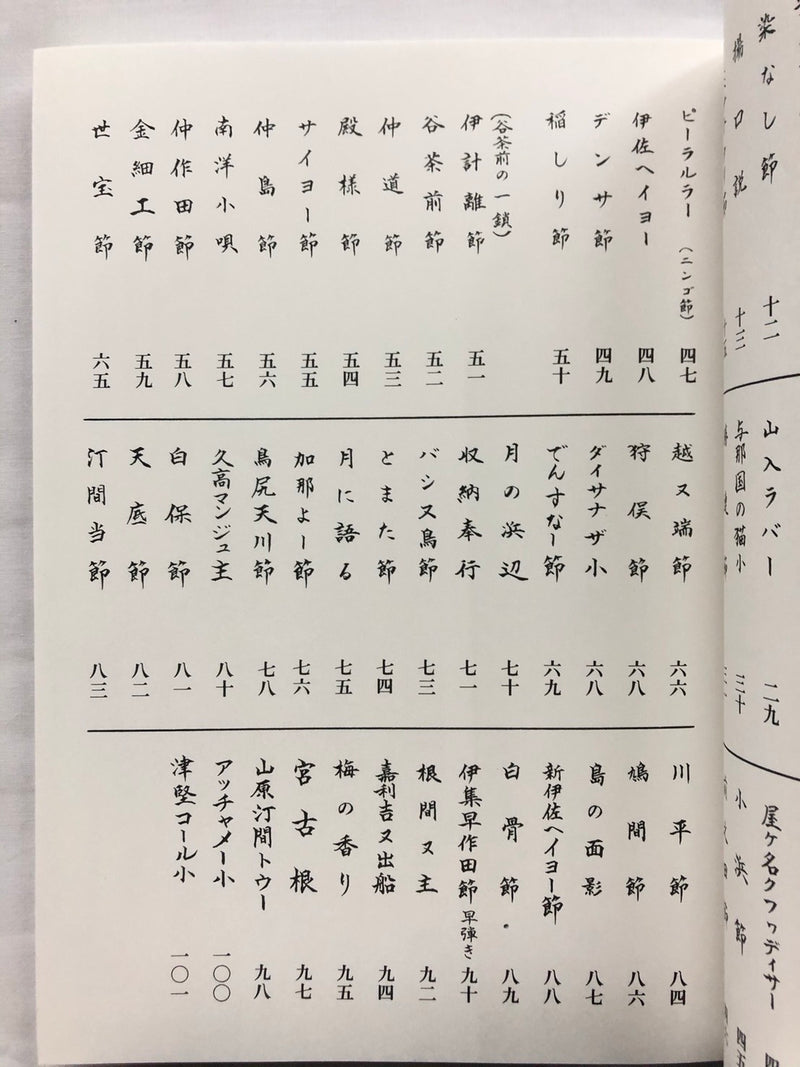 染なし節 十二
揚口説 十三
山入ラバー 二九
与那国の猫小 三十
屋ケ名クワディサー
小浜節 四五
ピーラルラー(ニンゴ節) 四七
伊佐ヘイヨー 四八
デンサ節 四九
稲しり節 五十
(谷茶前の一鎖)
伊計離節 五一
谷茶前節 五二
仲道節 五三
殿様節 五四
サイヨー節 五五
仲島節 五六
南洋小唄 五七
仲作田節 五八
金細工節 五九
世宝節 六五
越ヌ端節 六六
狩俣節 六八
ダイサナザ小 六八
でんすなー節 六九
月の浜辺 七十
収納奉行 七一
バシヌ鳥節 七三
とまた節 七四
月に語る 七五
加那よー節 七六
島尻天川節 七八
久高マンジュ主 八十
白保節 八一
天底節 八二
汀間当節 八三
川平節 八四
鳩間節 八六
島の面影 八七
新伊佐ヘイヨー節 八八
白骨節 八九
伊集早作田節 早弾き 九十
根間ヌ主 九二
嘉利吉ヌ出船 九四
梅の香り 九五
宮古根 九七
山原汀間トゥー 九八
アッチャメー小 一〇〇
津堅コール小 一〇一